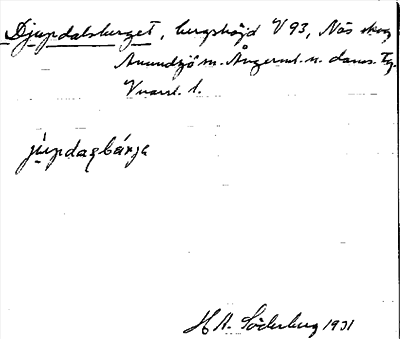 Djupdalsberget, bergshöjd V 93, Näs skog
Anundsjö sn. Ångerml. n. doms. tg.
V
jùpdaꞩbárja
H A. Söderberg 1931